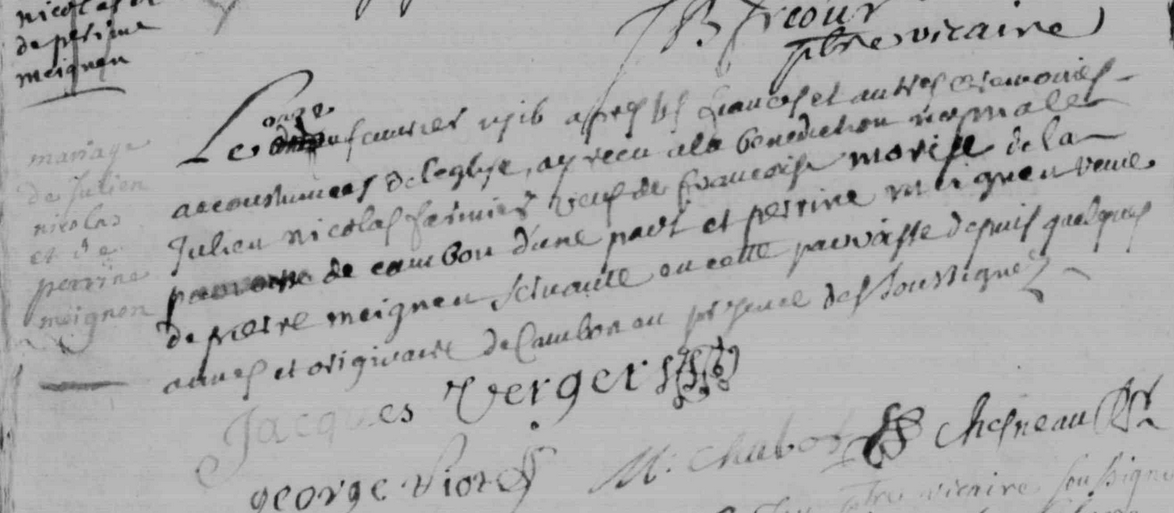 nicolas et
de perine
meignen
JB Freour
ptre vicaire
mariage
de Julien
nicolas
et de
perrine
meignen
Le onze feuvrier 1716 apres les fiances et autres ceremonies
accoustumees de leglise, ay receu a la benediction nuptialle
Julien nicolas fermier veuf de francoise morise de la
paroisse de cambon d'une part et perrine meignen veuve
de pierre meignen servante en cette parroisse depuis quelques
annes et originaire de Cambon en presence des soussignez
Jacques Verger
george Viot
M. Chabot
Chesneau Ptr
ptre vicaire soussigne